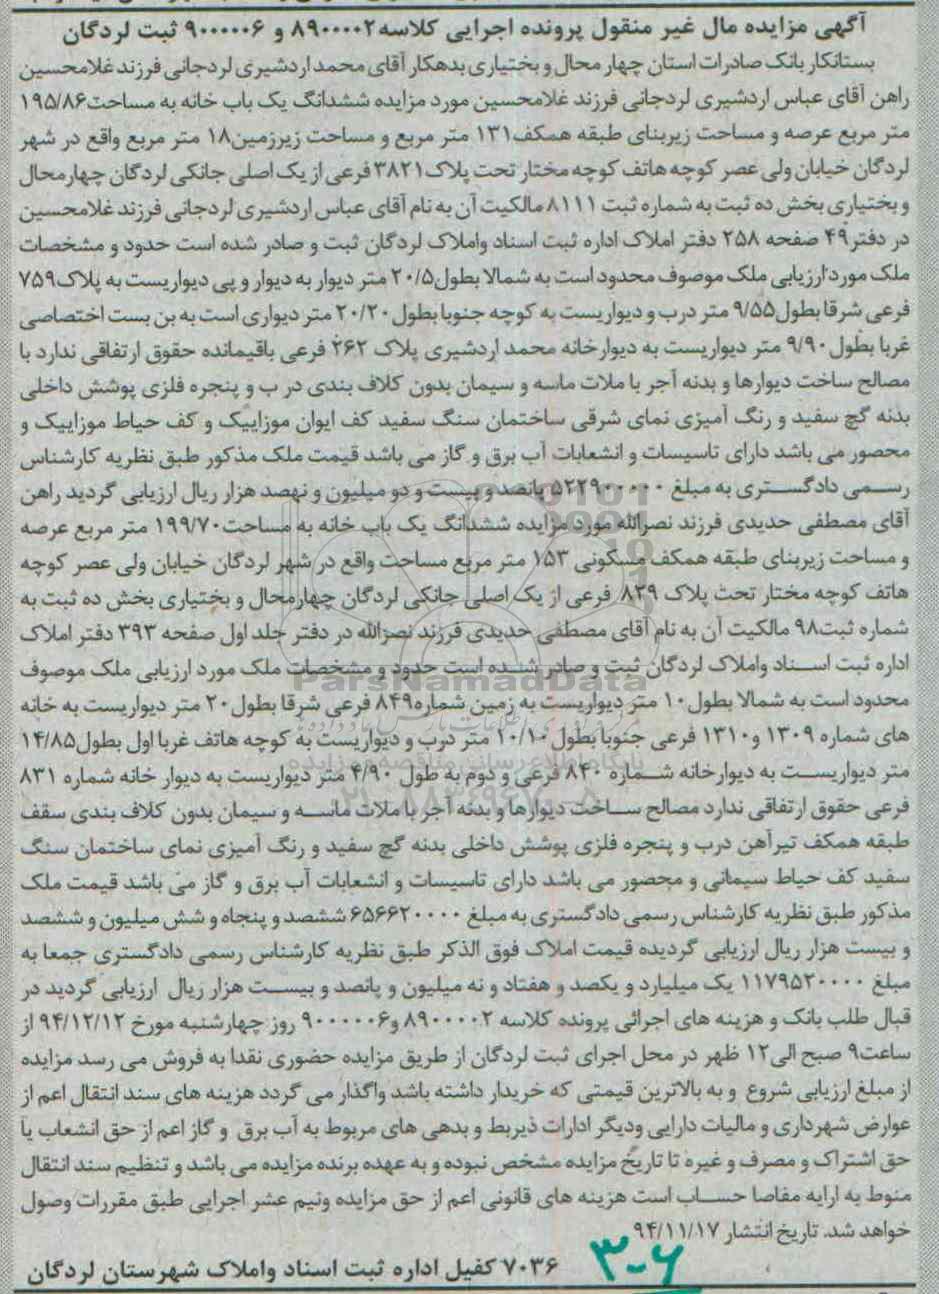 آگهی مزایده مال غیر منقول پرونده اجرایی کلاسه ۸۹۰۰۰۰۲ و ۹۰۰۰۰۰۶ ثبت لردگان
بستانکار بانک صادرات استان چهار محال و بختیاری بدهکار آقای محمد اردشیری لردجانی فرزند غلامحسین
راهن آقای عباس اردشیری لردجانی فرزند غلامحسین مورد مزایده ششدانگ یک باب خانه به مساحت۱۹۵/۸۶
متر مربع عرصه و مساحت زیربنای طبقه همکف۱۳۱ متر مربع و مساحت زیرزمین۱۸ متر مربع واقع در شهر
لردگان خیابان ولی عصر کوچه هاتف کوچه مختار تحت پلاک۳۸۲۱ فرعی از یک اصلی جانکی لردگان چهارمحال
و بختیاری بخش ده ثبت به شماره ثبت ۸۱۱۱ مالکیت آن به نام آقای عباس اردشیری لردجانی فرزند غلامحسین
در دفتر۴۹ صفحه ۲۵۸ دفتر املاک اداره ثبت اسناد واملاک لردگان ثبت و صادر شده است حدود و مشخصات
ملک مورد ارزیابی ملک موصوف محدود است به شمالا بطول۲۰/۵ متر دیوار به دیوار و پی دیواریست به پلاک۷۵۹
فرعی شرقا بطول۹/۵۵ متر درب و دیواریست به کوچه جنوبا بطول۲۰/۲۰ متر دیواری است به بن بست اختصاصی
غربا بطول۹/۹۰ متر دیواریست به دیوارخانه محمد اردشیری پلاک ۲۶۲ فرعی باقیمانده حقوق ارتفاقی ندارد با
مصالح ساخت دیوارها و بدنه آجر با ملات ماسه و سیمان بدون کلاف بندی در ب و پنجره فلزی پوشش داخلی
بدنه گچ سفید و رنگ آمیزی نمای شرقی ساختمان سنگ سفید کف ایوان موزاییک و کف حیاط موزاییک و
محصور می باشد دارای تاسیسات و انشعابات آب برق و گاز می باشد قیمت ملک مذکور طبق نظریه کارشناس
رسمی دادگستری به مبلغ ۵۲۲۹۰۰۰۰۰ پانصد و بیست و دو میلیون و نهصد هزار ریال ارزیابی گردید راهن
آقای مصطفی حدیدی فرزند نصرالله مورد مزایده ششدانگ یک باب خانه به مساحت۱۹۹/۷۰ متر مربع عرصه
و مساحت زیربنای طبقه همکف مسکونی ۱۵۳ متر مربع مساحت واقع در شهر لردگان خیابان ولی عصر کوچه
هاتف کوچه مختار تحت پلاک ۸۲۹ فرعی از یک اصلی جانکی لردگان چهارمحال و بختیاری بخش ده ثبت به
شماره ثبت۹۸ مالکیت آن به نام آقای مصطفی حدیدی فرزند نصرالله در دفتر جلد اول صفحه ۳۹۳ دفتر املاک
اداره ثبت اسناد واملاک لردگان ثبت و صادر شده است حدود و مشخصات ملک مورد ارزیابی ملک موصوف
ParsNamadData
محدود است به شمالا بطول۱۰ متر دیواریست به زمین شماره۸۴۹ فرعی شرقا بطول۲۰ متر دیواریست به خانه
های شماره ۱۳۰۹ و۱۳۱۰ فرعی جنوبا بطول۱۰/۱۰ متر درب و دیواریست به کوچه هاتف غربا اول بطول۱۴/۸۵
متر دیواریست به دیوارخانه شماره ۸۴۰ فرعی و دوم به طول ۴/۹۰ متر دیواریست به دیوار خانه شماره ۸۳۱
فرعی حقوق ارتفاقی ندارد مصالح ساخت دیوارها و بدنه آجر با ملات ماسه و سیمان بدون کلاف بندی سقف
طبقه همکف تیرآهن درب و پنجره فلزی پوشش داخلی بدنه گچ سفید و رنگ آمیزی نمای ساختمان سنگ
سفید کف حیاط سیمانی و محصور می باشد دارای تاسیسات و انشعابات آب برق و گاز می باشد قیمت ملک
مذکور طبق نظریه کارشناس رسمی دادگستری به مبلغ ۶۵۶۶۲۰۰۰۰ ششصد و پنجاه و شش میلیون و ششصد
و بیست هزار ریال ارزیابی گردیده قیمت املاک فوق الذکر طبق نظریه کارشناس رسمی دادگستری جمعا به
مبلغ ۱۱۷۹۵۲۰۰۰۰ یک میلیارد و یکصد و هفتاد و نه میلیون و پانصد و بیست هزار ریال ارزیابی گردید در
قبال طلب بانک و هزینه های اجرائی پرونده کلاسه ۸۹۰۰۰۰۲ و۹۰۰۰۰۰۶ روز چهارشنبه مورخ ۹۴/۱۲/۱۲ از
ساعت۹ صبح الی۱۲ ظهر در محل اجرای ثبت لردگان از طریق مزایده حضوری نقدا به فروش می رسد مزایده
از مبلغ ارزیابی شروع و به بالاترین قیمتی که خریدار داشته باشد واگذار می گردد هزینه های سند انتقال اعم از
عوارض شهرداری و مالیات دارایی ودیگر ادارات ذیربط و بدهی های مربوط به آب برق و گاز اعم از حق انشعاب یا
حق اشتراک و مصرف و غیره تا تاریخ مزایده مشخص نبوده و به عهده برنده مزایده می باشد و تنظیم سند انتقال
منوط به ارایه مفاصا حساب است هزینه های قانونی اعم از حق مزایده ونیم عشر اجرایی طبق مقررات وصول
خواهد شد. تاریخ انتشار ۹۴/۱۱/۱۷
۳-۶
۷۰۳۶ کفیل اداره ثبت اسناد واملاک شهرستان لردگان